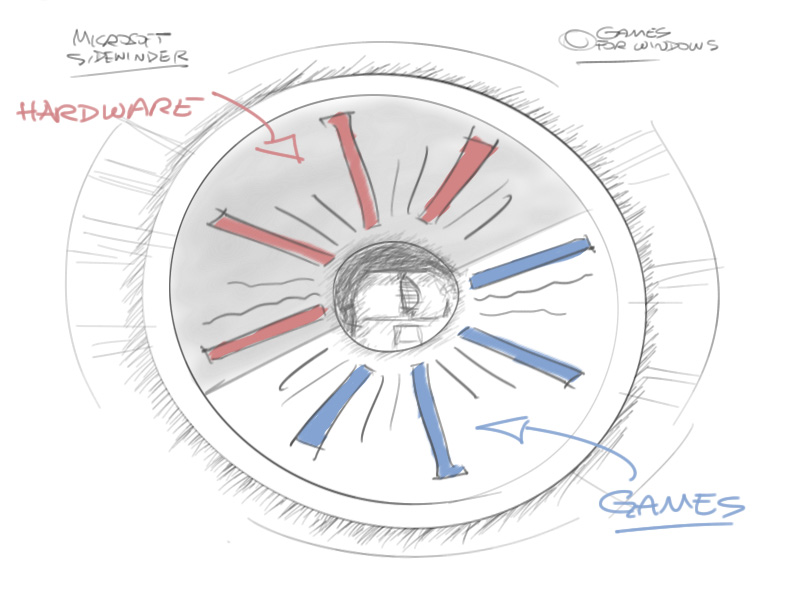 MICROSOFT
SIDEWINDER
GAMES
FOR WINDOWS
HARDWARE
GAMES